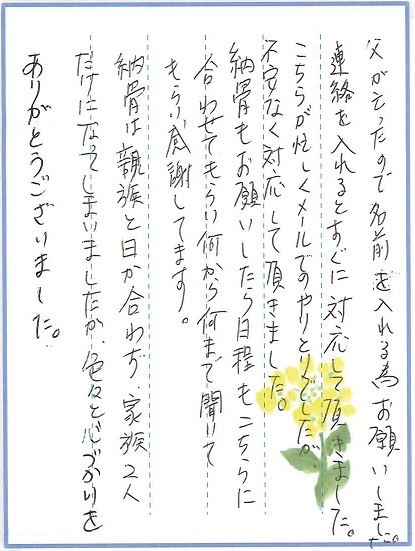 父が亡ったので名前を入れる為お願いしました。
連絡を入れるとすぐに対応して頂きました。
こちらが忙しくメールでのやりとりでしたが
不安なく対応して頂きました。
納骨もお願いしたら日程もこちらに
合わせてもらい何から何まで聞いて
もらい感謝してます。
納骨は親族と日が合わず、家族2人
だけになってしまいましたが、色々と心づかいを
ありがとうございました。